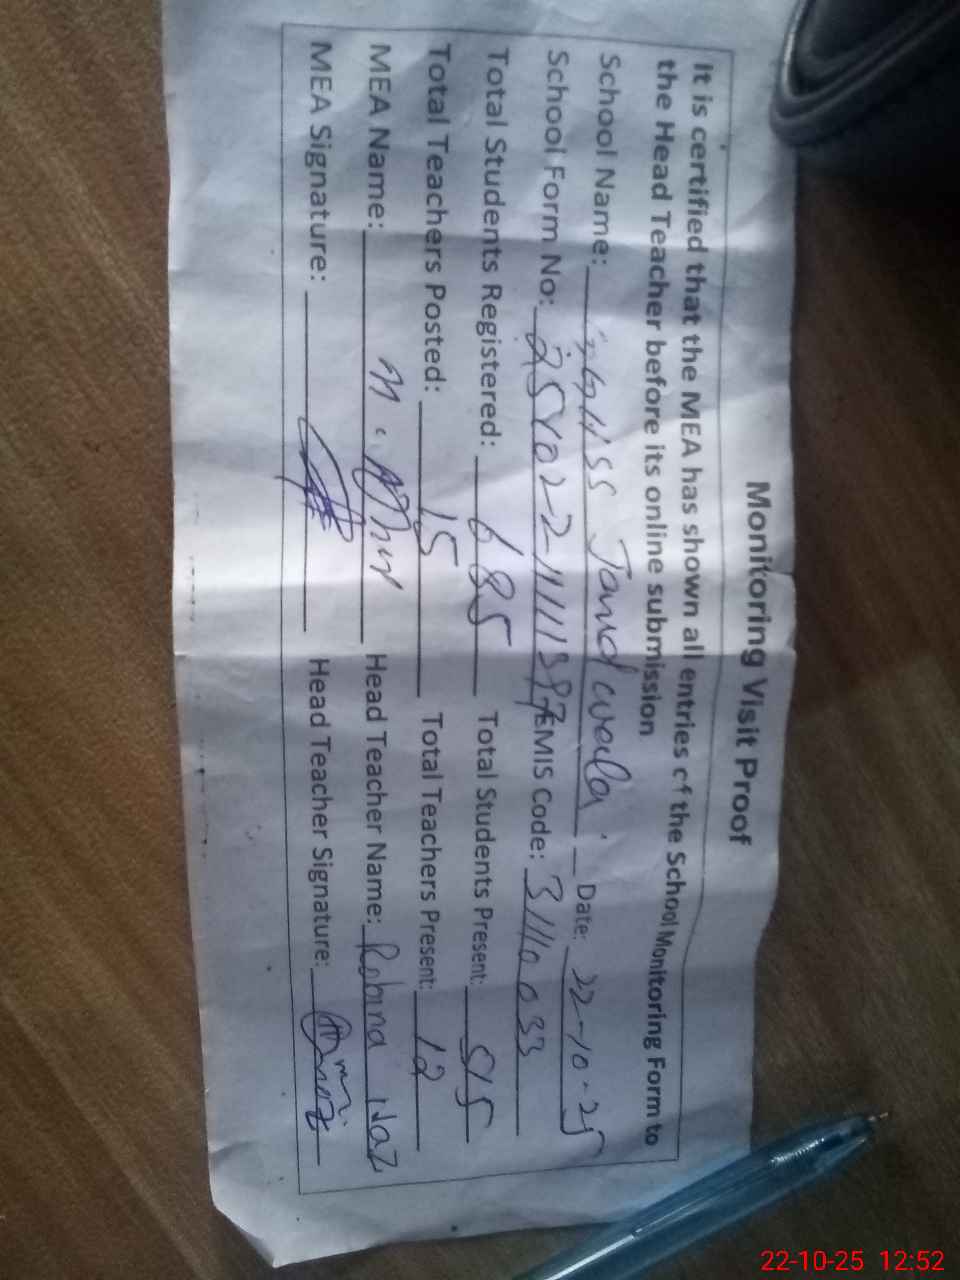 Monitoring Visit Proof
It is certified that the MEA has shown all entries of the School Monitoring Form to
the Head Teacher before its online submission
School Name: GGHSS Jand wala Date: 22-10-25
School Form No: EMIS Code: 31110033
Total Students Registered: 685 Total Students Present: 515
Total Teachers Posted: 15 Total Teachers Present: 12
MEA Name: M. Head Teacher Name: Robina Naz
MEA Signature: Head Teacher Signature:
22-10-25 12:52